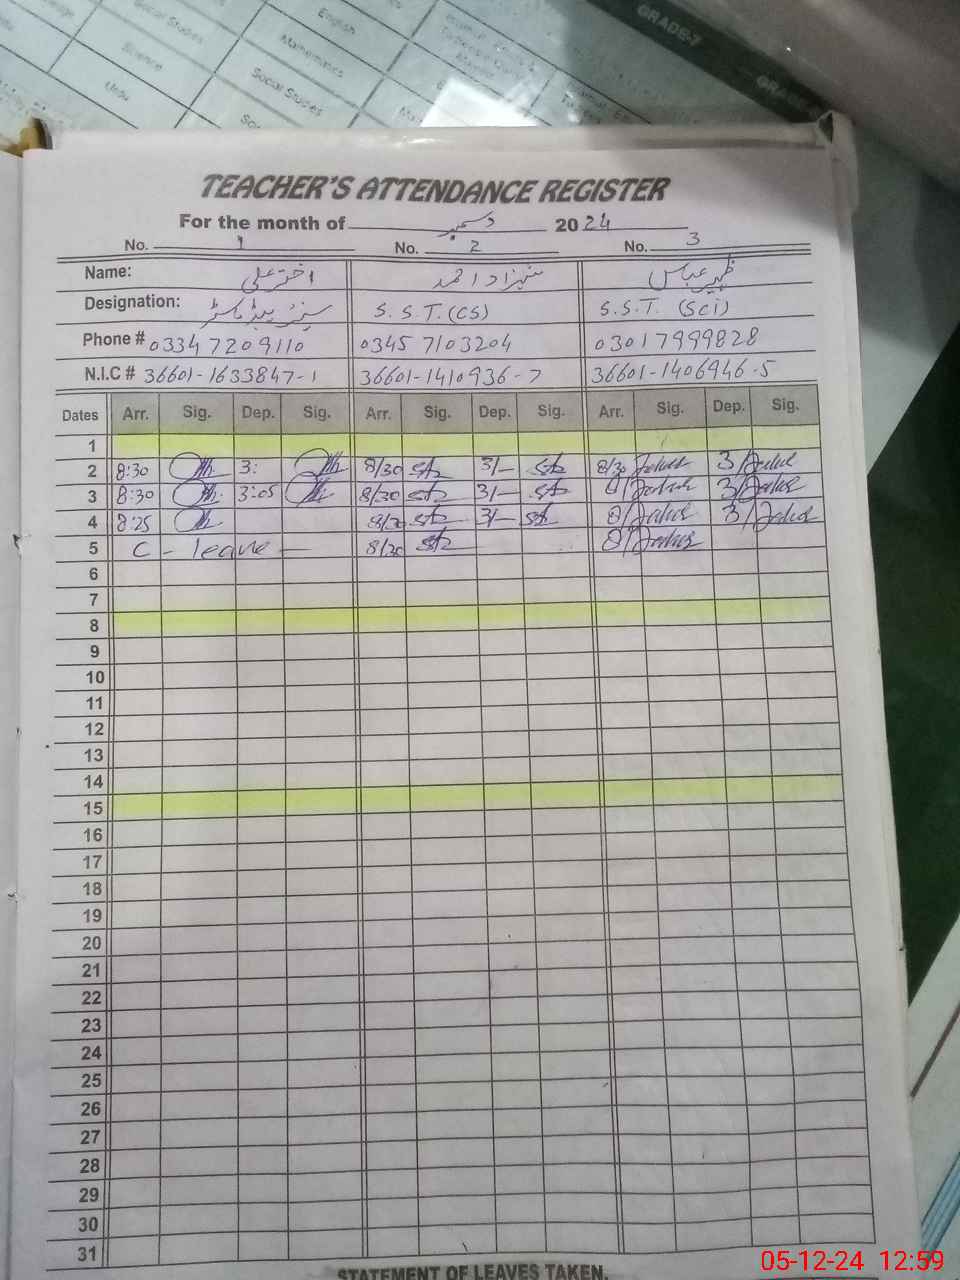 English
Social Studies
Mathematics
Science
Social Studies
Urdu
GRADE-7
TEACHER'S ATTENDANCE REGISTER
For the month of دسمبر 2024
No. 1 No. 2 No. 3
Name: اختر علی شہزاد احمد ظہیر عباس
Designation: سینئر ہیڈ ماسٹر S.S.T.(CS) S.S.T. (Sci)
Phone # 03347209110 03457103204 03017999828
N.I.C # 36601-1633847-1 36601-1410936-7 36601-1406946-5
Dates Arr. Sig. Dep. Sig. Arr. Sig. Dep. Sig. Arr. Sig. Dep. Sig.
1
2 8:30 3: 8/30 3/- 8/30 3/
3 8:30 3:05 8/30 3/- 8/ 3/
4 8:25 8/30 3/- 8/ 3/
5 C - leave - 8/30 8/
6
7
8
9
10
11
12
13
14
15
16
17
18
19
20
21
22
23
24
25
26
27
28
29
30
31
STATEMENT OF LEAVES TAKEN.
05-12-24 12:59